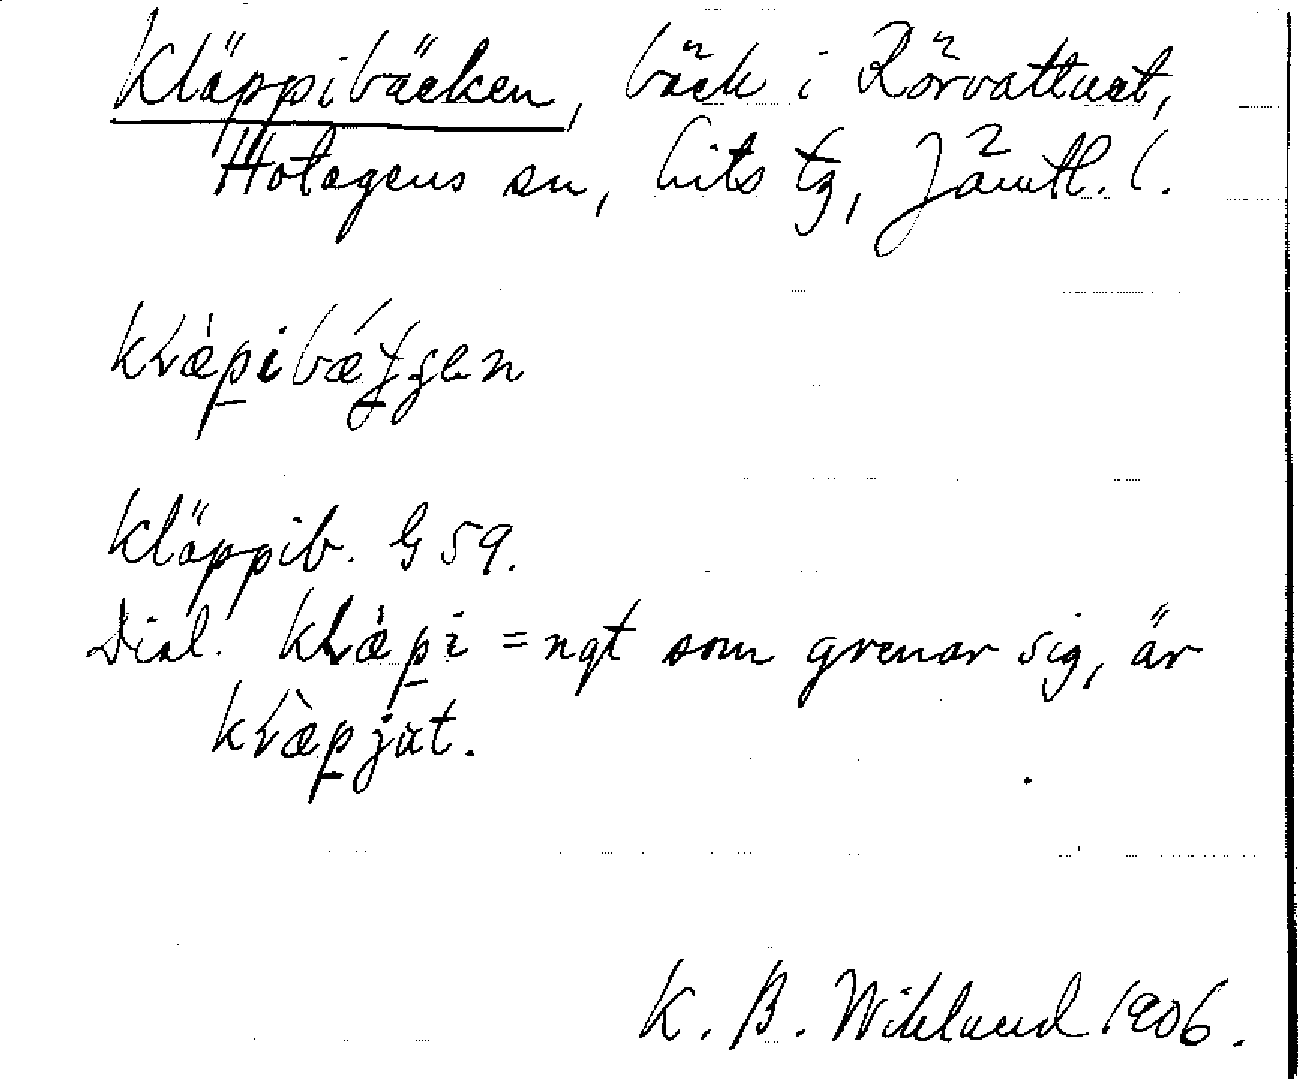 Kläppibäcken, bäck i Rörvattnet,
Hotagens sn, Lits tg, Jämtl. l.
Kläppib. G 59.
Dial. = ngt som grenar sig, är
K. B. Wiklund 1906.